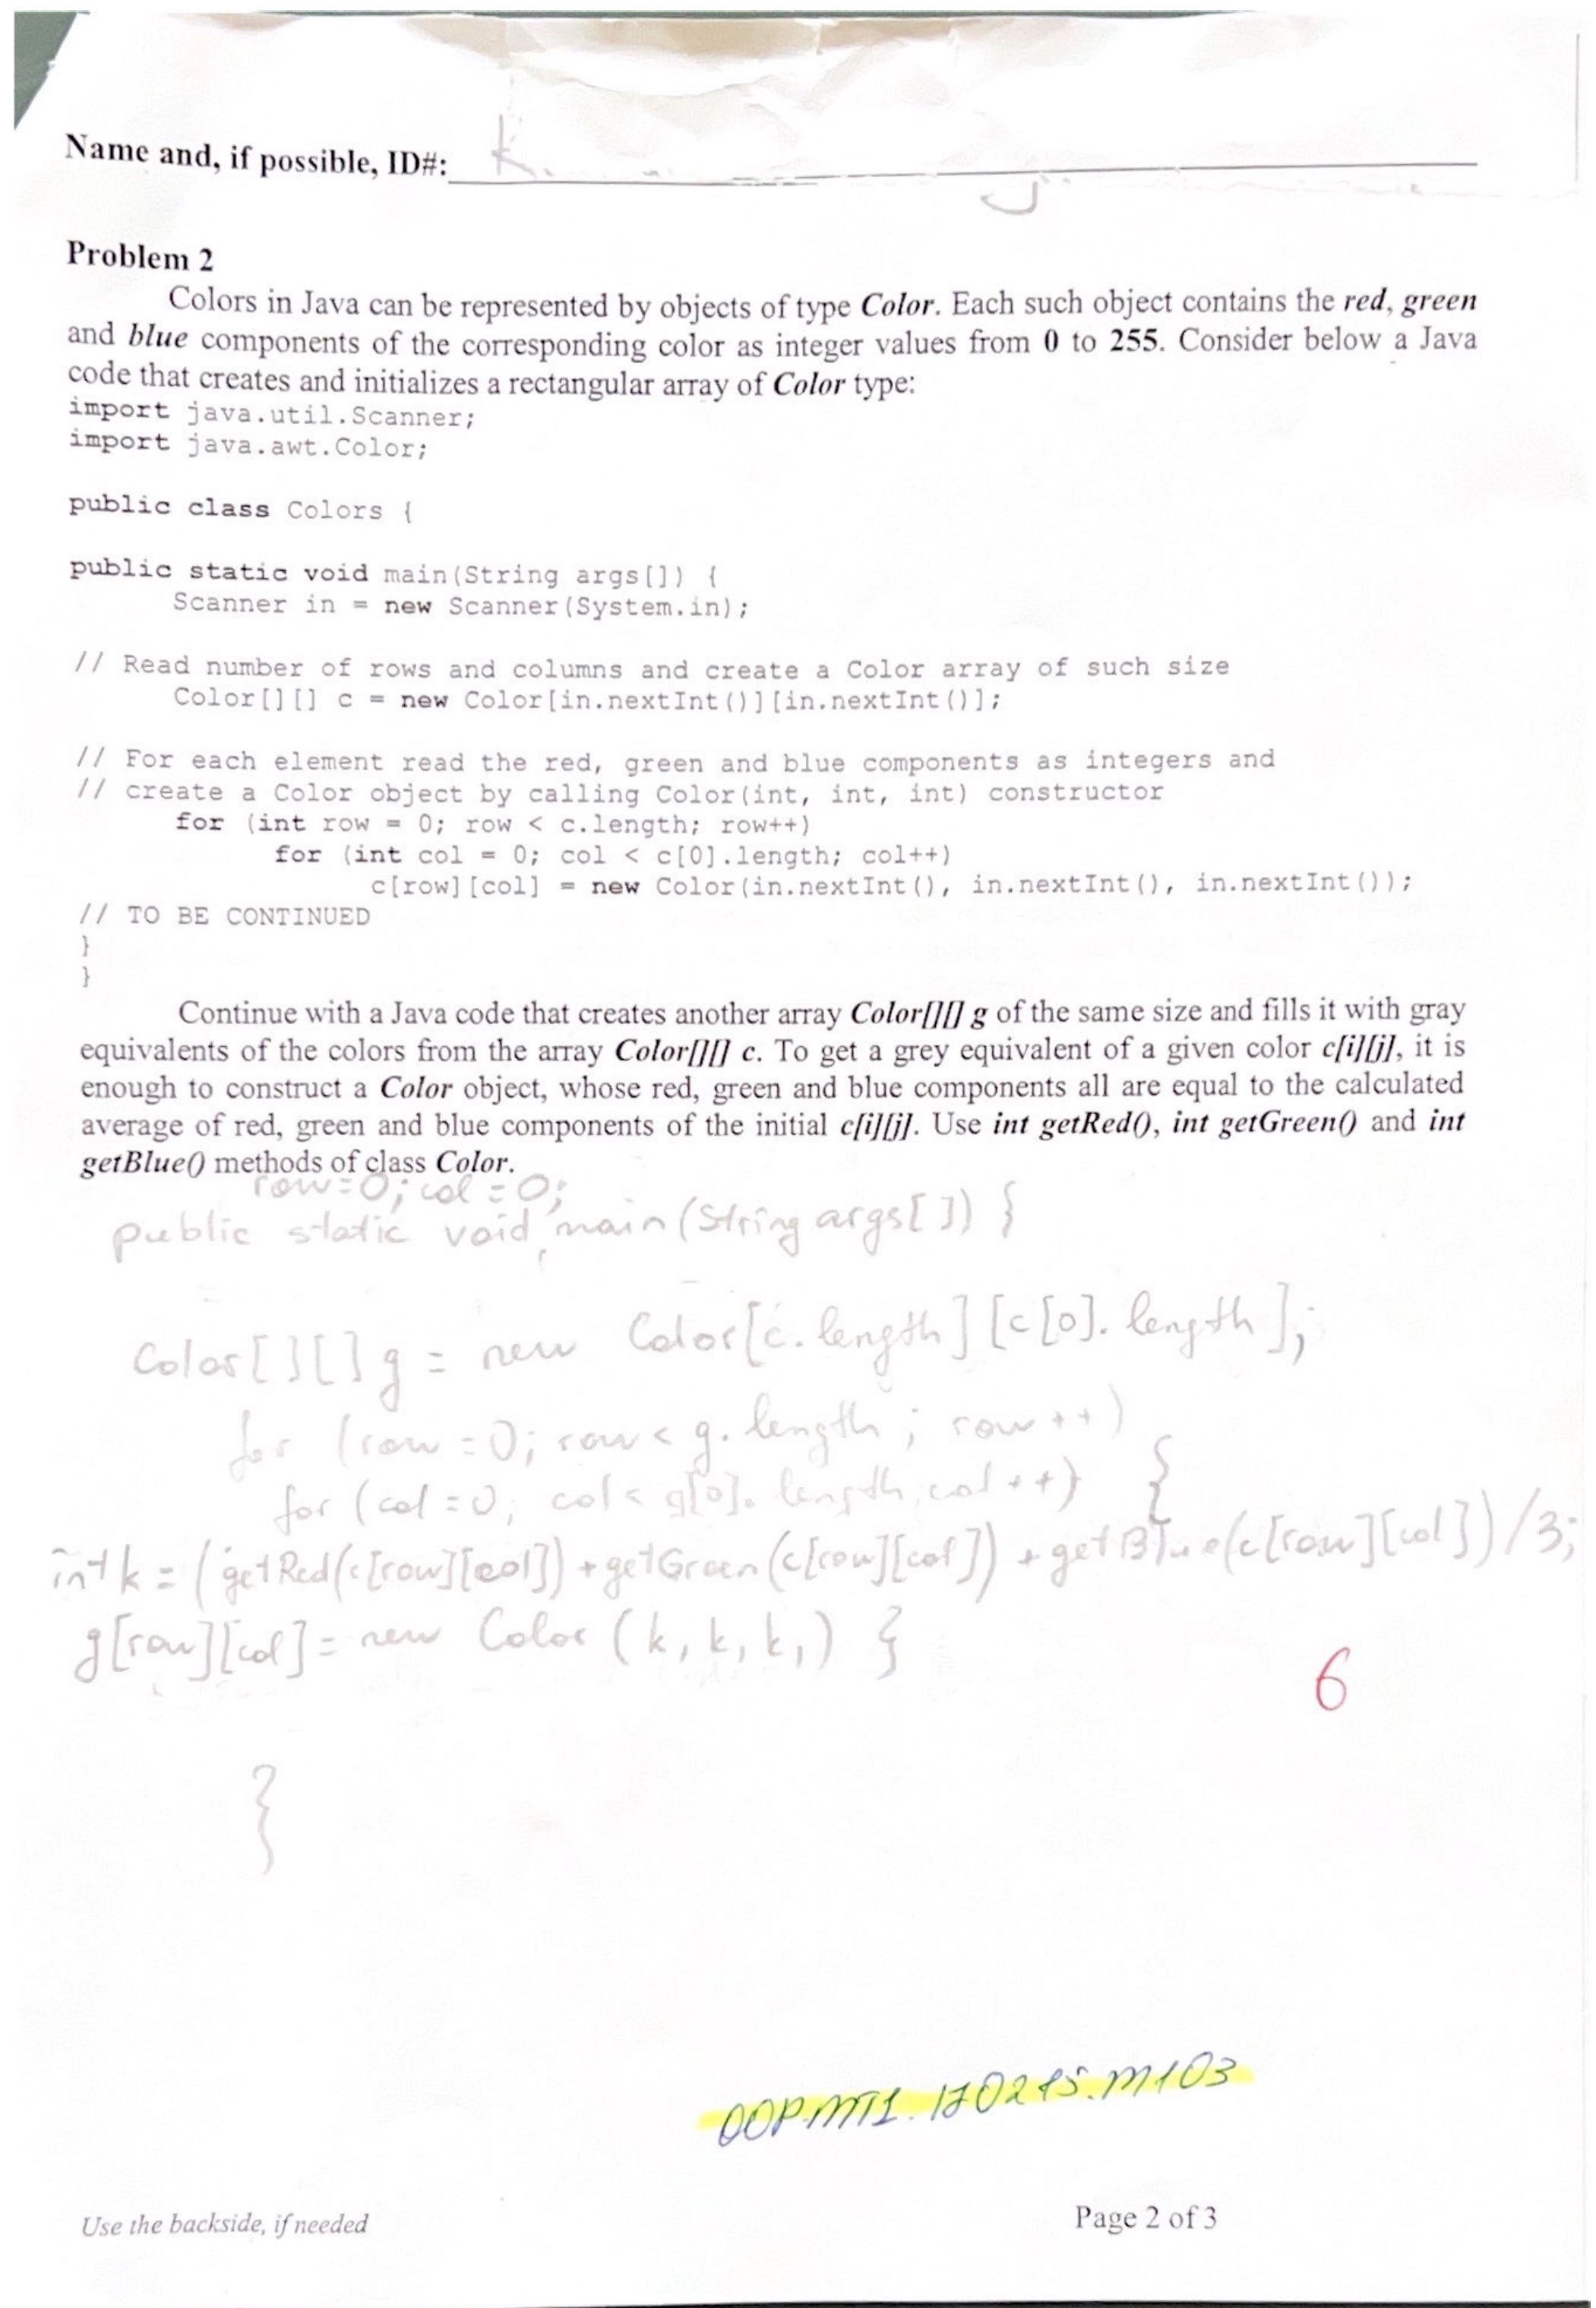 Name and, if possible, ID#:
Problem 2
Colors in Java can be represented by objects of type Color. Each such object contains the red, green
and blue components of the corresponding color as integer values from 0 to 255. Consider below a Java
code that creates and initializes a rectangular array of Color type:
import java.util.Scanner;
import java.awt.Color;
public class Colors {
public static void main(String args[]) {
Scanner in = new Scanner(System.in);
// Read number of rows and columns and create a Color array of such size
Color[][] c = new Color[in.nextInt()][in.nextInt()];
// For each element read the red, green and blue components as integers and
// create a Color object by calling Color(int, int, int) constructor
for (int row = 0; row < c.length; row++)
for (int col = 0; col < c[0].length; col++)
c[row][col] = new Color(in.nextInt(), in.nextInt(), in.nextInt());
// TO BE CONTINUED
}
}
Continue with a Java code that creates another array Color[][] g of the same size and fills it with gray
equivalents of the colors from the array Color[][] c. To get a grey equivalent of a given color c[i][j], it is
enough to construct a Color object, whose red, green and blue components all are equal to the calculated
average of red, green and blue components of the initial c[i][j]. Use int getRed(), int getGreen() and int
getBlue() methods of class Color.
row=0; col=0;
public static void main(String args[]) {
Color[][] g = new Color[c.length][c[0].length];
for (row=0; row<g.length; row++)
for (col=0; col<g[0].length, col++) {
int k = (getRed(c[row][col])+getGreen(c[row][col])+getBlue(c[row][col])/3;
g[row][col]= new Color (k, k, k,) }
6
}
OOP.MT1.170215.M103
Use the backside, if needed
Page 2 of 3